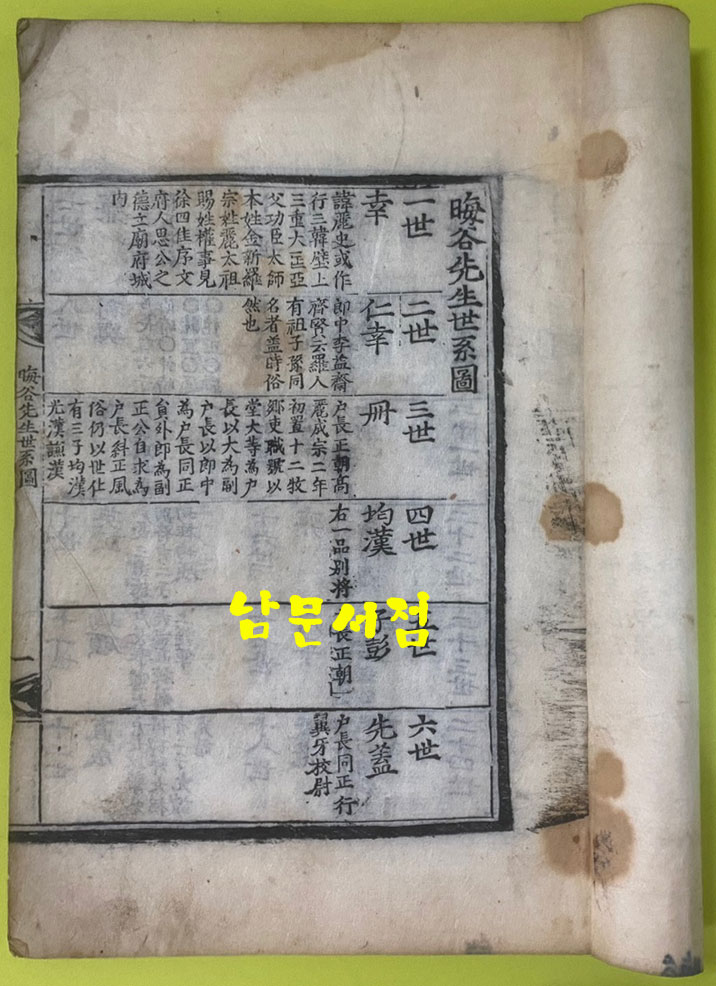 晦谷先生世系圖
一世
幸
諱麗史或作
行三韓壁上
三重大匡亞
父功臣太師
本姓金新羅
宗姓麗太祖
賜姓權事見
徐四佳序文
府人思公之
德立廟府城
內
二世
仁幸
郎中李益齋
齊賢云羅人
有祖子孫同
名者盖時俗
然也
三世
冊
户長正朝高
麗成宗二年
初置十二牧
鄉吏職號以
堂大等為户
長以大為副
户長以郎中
為户長同正
貟外郎為副
正公自求為
户長斜正風
俗仍以世仕
有三子均漢
光漢謙漢
四世
均漢
右一品别将
五世
子彭
户長正朝
六世
先盖
户長同正行
巽牙校尉
晦谷先生世系圖
一
남문서점